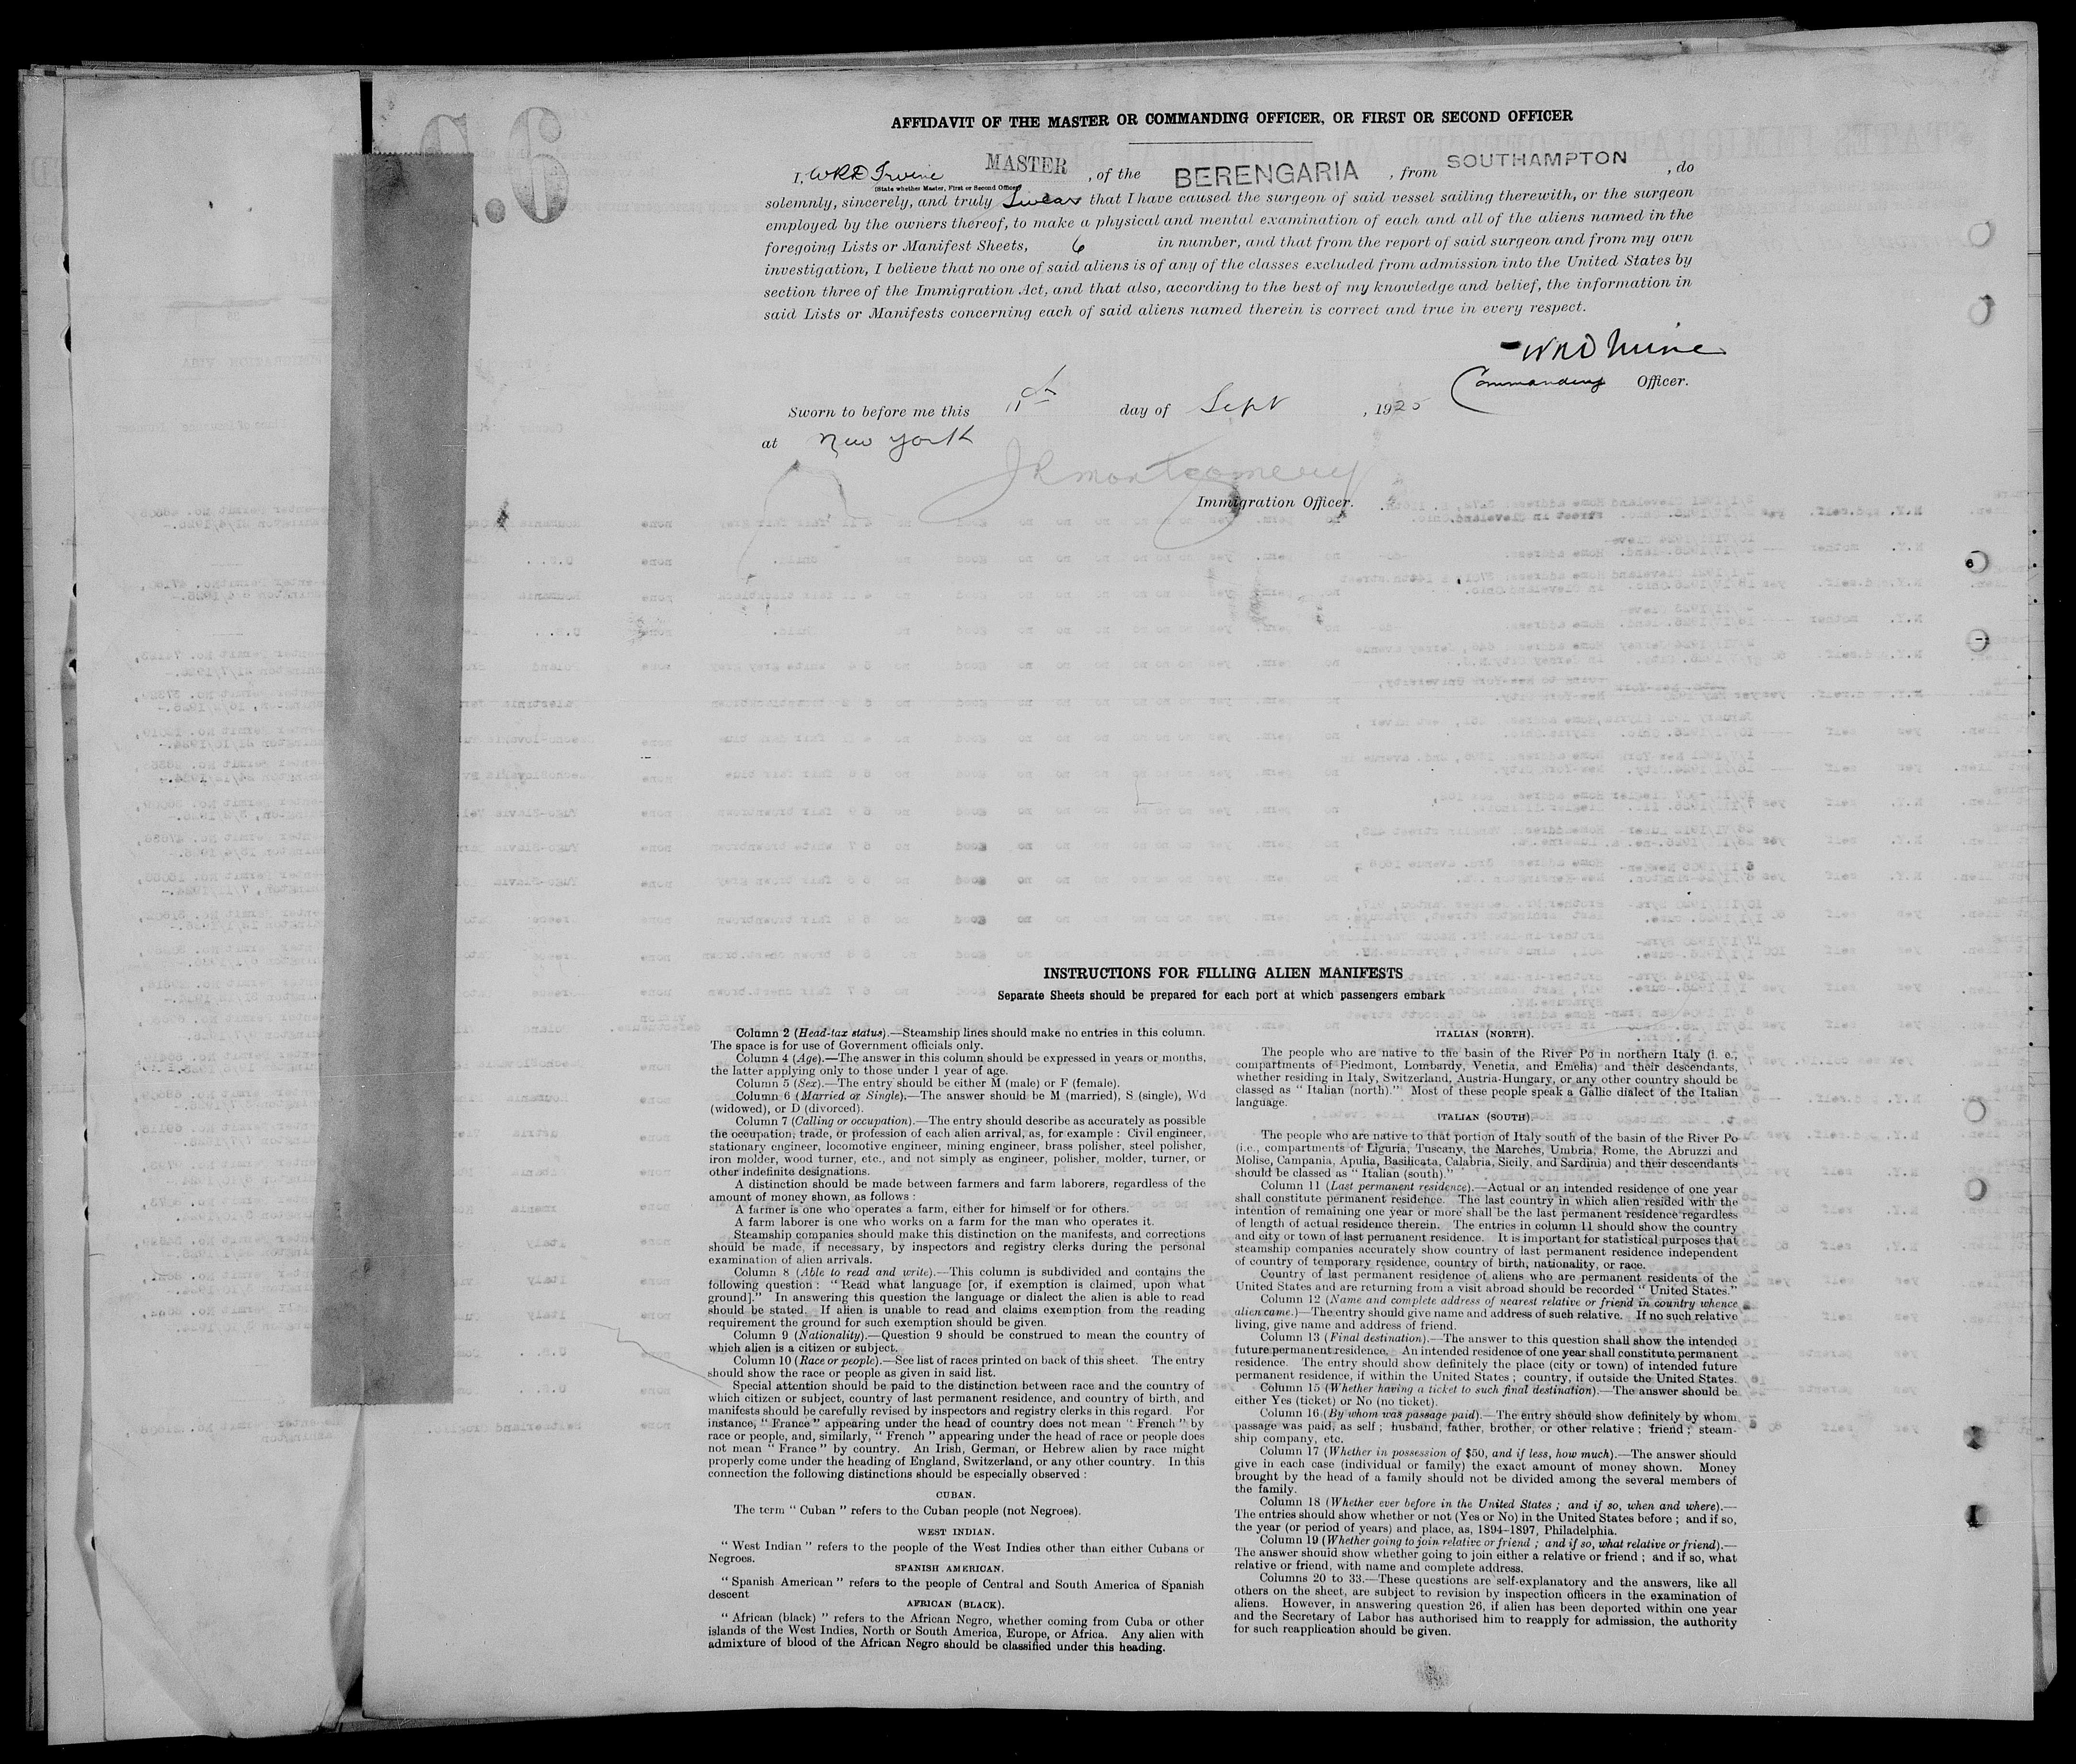 AFFIDAVIT OF THE MASTER OR COMMANDING OFFICER, OR FIRST OR SECOND OFFICER
I, WRD Irvine MASTER, of the BERENGARIA, from SOUTHAMPTON, do
(State whether Master, First or Second Officer)
solemnly, sincerely, and truly Swear that I have caused the surgeon of said vessel sailing therewith, or the surgeon
employed by the owners thereof, to make a physical and mental examination of each and all of the aliens named in the
foregoing Lists or Manifest Sheets, 6 in number, and that from the report of said surgeon and from my own
investigation, I believe that no one of said aliens is of any of the classes excluded from admission into the United States by
section three of the Immigration Act, and that also, according to the best of my knowledge and belief, the information in
said Lists or Manifests concerning each of said aliens named therein is correct and true in every respect.
WRD Irvine
Commanding Officer.
Sworn to before me this day of Sept, 1925
at New York
JR Montgomery
Immigration Officer.
INSTRUCTIONS FOR FILLING ALIEN MANIFESTS
Separate Sheets should be prepared for each port at which passengers embark
Column 2 (Head-tax status).—Steamship lines should make no entries in this column.
The space is for use of Government officials only.
Column 4 (Age).—The answer in this column should be expressed in years or months,
the latter applying only to those under 1 year of age.
Column 5 (Sex).—The entry should be either M (male) or F (female).
Column 6 (Married or Single).—The answer should be M (married), S (single), Wd
(widowed), or D (divorced).
Column 7 (Calling or occupation).—The entry should describe as accurately as possible
the occupation, trade, or profession of each alien arrival, as, for example : Civil engineer,
stationary engineer, locomotive engineer, mining engineer, brass polisher, steel polisher,
iron molder, wood turner, etc., and not simply as engineer, polisher, molder, turner, or
other indefinite designations.
A distinction should be made between farmers and farm laborers, regardless of the
amount of money shown, as follows :
A farmer is one who operates a farm, either for himself or for others.
A farm laborer is one who works on a farm for the man who operates it.
Steamship companies should make this distinction on the manifests, and corrections
should be made, if necessary, by inspectors and registry clerks during the personal
examination of alien arrivals.
Column 8 (Able to read and write).—This column is subdivided and contains the
following question : “ Read what language [or, if exemption is claimed, upon what
ground].” In answering this question the language or dialect the alien is able to read
should be stated. If alien is unable to read and claims exemption from the reading
requirement the ground for such exemption should be given.
Column 9 (Nationality).—Question 9 should be construed to mean the country of
which alien is a citizen or subject.
Column 10 (Race or people).—See list of races printed on back of this sheet. The entry
should show the race or people as given in said list.
Special attention should be paid to the distinction between race and the country of
which citizen or subject, country of last permanent residence, and country of birth, and
manifests should be carefully revised by inspectors and registry clerks in this regard. For
instance, “ France ” appearing under the head of country does not mean “ French ” by
race or people, and, similarly, “ French ” appearing under the head of race or people does
not mean “ France ” by country. An Irish, German, or Hebrew alien by race might
properly come under the heading of England, Switzerland, or any other country. In this
connection the following distinctions should be especially observed :
CUBAN.
The term “ Cuban ” refers to the Cuban people (not Negroes).
WEST INDIAN.
“ West Indian ” refers to the people of the West Indies other than either Cubans or
Negroes.
SPANISH AMERICAN.
“ Spanish American ” refers to the people of Central and South America of Spanish
descent
AFRICAN (BLACK).
“ African (black) ” refers to the African Negro, whether coming from Cuba or other
islands of the West Indies, North or South America, Europe, or Africa. Any alien with
admixture of blood of the African Negro should be classified under this heading.
ITALIAN (NORTH).
The people who are native to the basin of the River Po in northern Italy (i. e.,
compartments of Piedmont, Lombardy, Venetia, and Emelia) and their descendants,
whether residing in Italy, Switzerland, Austria-Hungary, or any other country should be
classed as “ Italian (north).” Most of these people speak a Gallic dialect of the Italian
language.
ITALIAN (SOUTH).
The people who are native to that portion of Italy south of the basin of the River Po
(i.e., compartments of Liguria, Tuscany, the Marches, Umbria, Rome, the Abruzzi and
Molise, Campania, Apulia, Basilicata, Calabria, Sicily, and Sardinia) and their descendants
should be classed as “ Italian (south).”
Column 11 (Last permanent residence).—Actual or an intended residence of one year
shall constitute permanent residence. The last country in which alien resided with the
intention of remaining one year or more shall be the last permanent residence regardless
of length of actual residence therein. The entries in column 11 should show the country
and city or town of last permanent residence. It is important for statistical purposes that
steamship companies accurately show country of last permanent residence independent
of country of temporary residence, country of birth, nationality, or race.
Country of last permanent residence of aliens who are permanent residents of the
United States and are returning from a visit abroad should be recorded “ United States.”
Column 12 (Name and complete address of nearest relative or friend in country whence
alien came.)—The entry should give name and address of such relative. If no such relative
living, give name and address of friend.
Column 13 (Final destination).—The answer to this question shall show the intended
future permanent residence. An intended residence of one year shall constitute permanent
residence. The entry should show definitely the place (city or town) of intended future
permanent residence, if within the United States ; country, if outside the United States.
Column 15 (Whether having a ticket to such final destination).—The answer should be
either Yes (ticket) or No (no ticket).
Column 16 (By whom was passage paid).—The entry should show definitely by whom
passage was paid, as self ; husband, father, brother, or other relative ; friend ; steam-
ship company, etc.
Column 17 (Whether in possession of $50, and if less, how much).—The answer should
give in each case (individual or family) the exact amount of money shown. Money
brought by the head of a family should not be divided among the several members of
the family.
Column 18 (Whether ever before in the United States ; and if so, when and where).—
The entries should show whether or not (Yes or No) in the United States before ; and if so,
the year (or period of years) and place, as, 1894–1897, Philadelphia.
Column 19 (Whether going to join relative or friend ; and if so, what relative or friend).—
The answer should show whether going to join either a relative or friend ; and if so, what
relative or friend, with name and complete address.
Columns 20 to 33.—These questions are self-explanatory and the answers, like all
others on the sheet, are subject to revision by inspection officers in the examination of
aliens. However, in answering question 26, if alien has been deported within one year
and the Secretary of Labor has authorised him to reapply for admission, the authority
for such reapplication should be given.